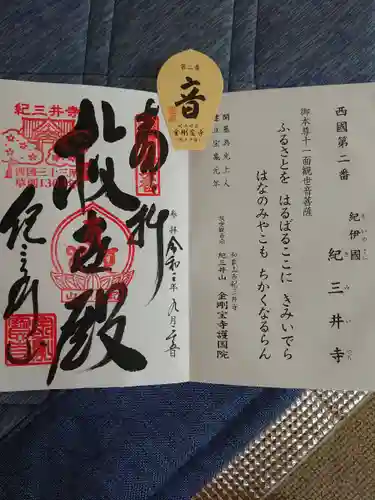 西國第二番
紀伊國
きいのくに
紀三井寺
き み い でら
御本尊十一面観世音菩薩
ふるさとを はるばるここに きみいでら
はなのみやこも ちかくなるらん
開基為光上人
建立宝亀元年
紀三井山 金剛宝寺護国院
第二番
音
金剛宝寺
紀三井寺
西國三十三所
草創1300年
奉拝
救世殿
紀三井寺
参拝 令和二年九月二